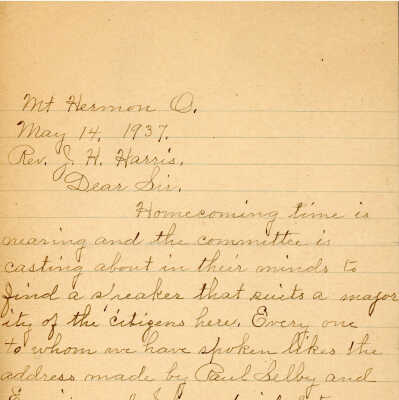 Mt Hermon O.
May 14, 1937.
Rev. J. H. Harris.
Dear Sir.
Homecoming time is
nearing and the committee is
casting about in their minds to
find a speaker that suits a major
ity of the citizens here. Every one
to whom we have spoken likes the
address made by Paul Selby and